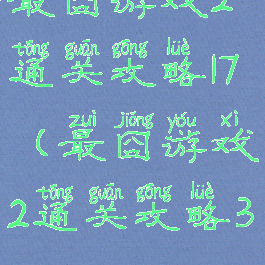 最囧游戏2
tōng guān gōng lüè
通关攻略17
zuì jiǒng yóu xì
(最囧游戏
tōng guān gōng lüè
2通关攻略3